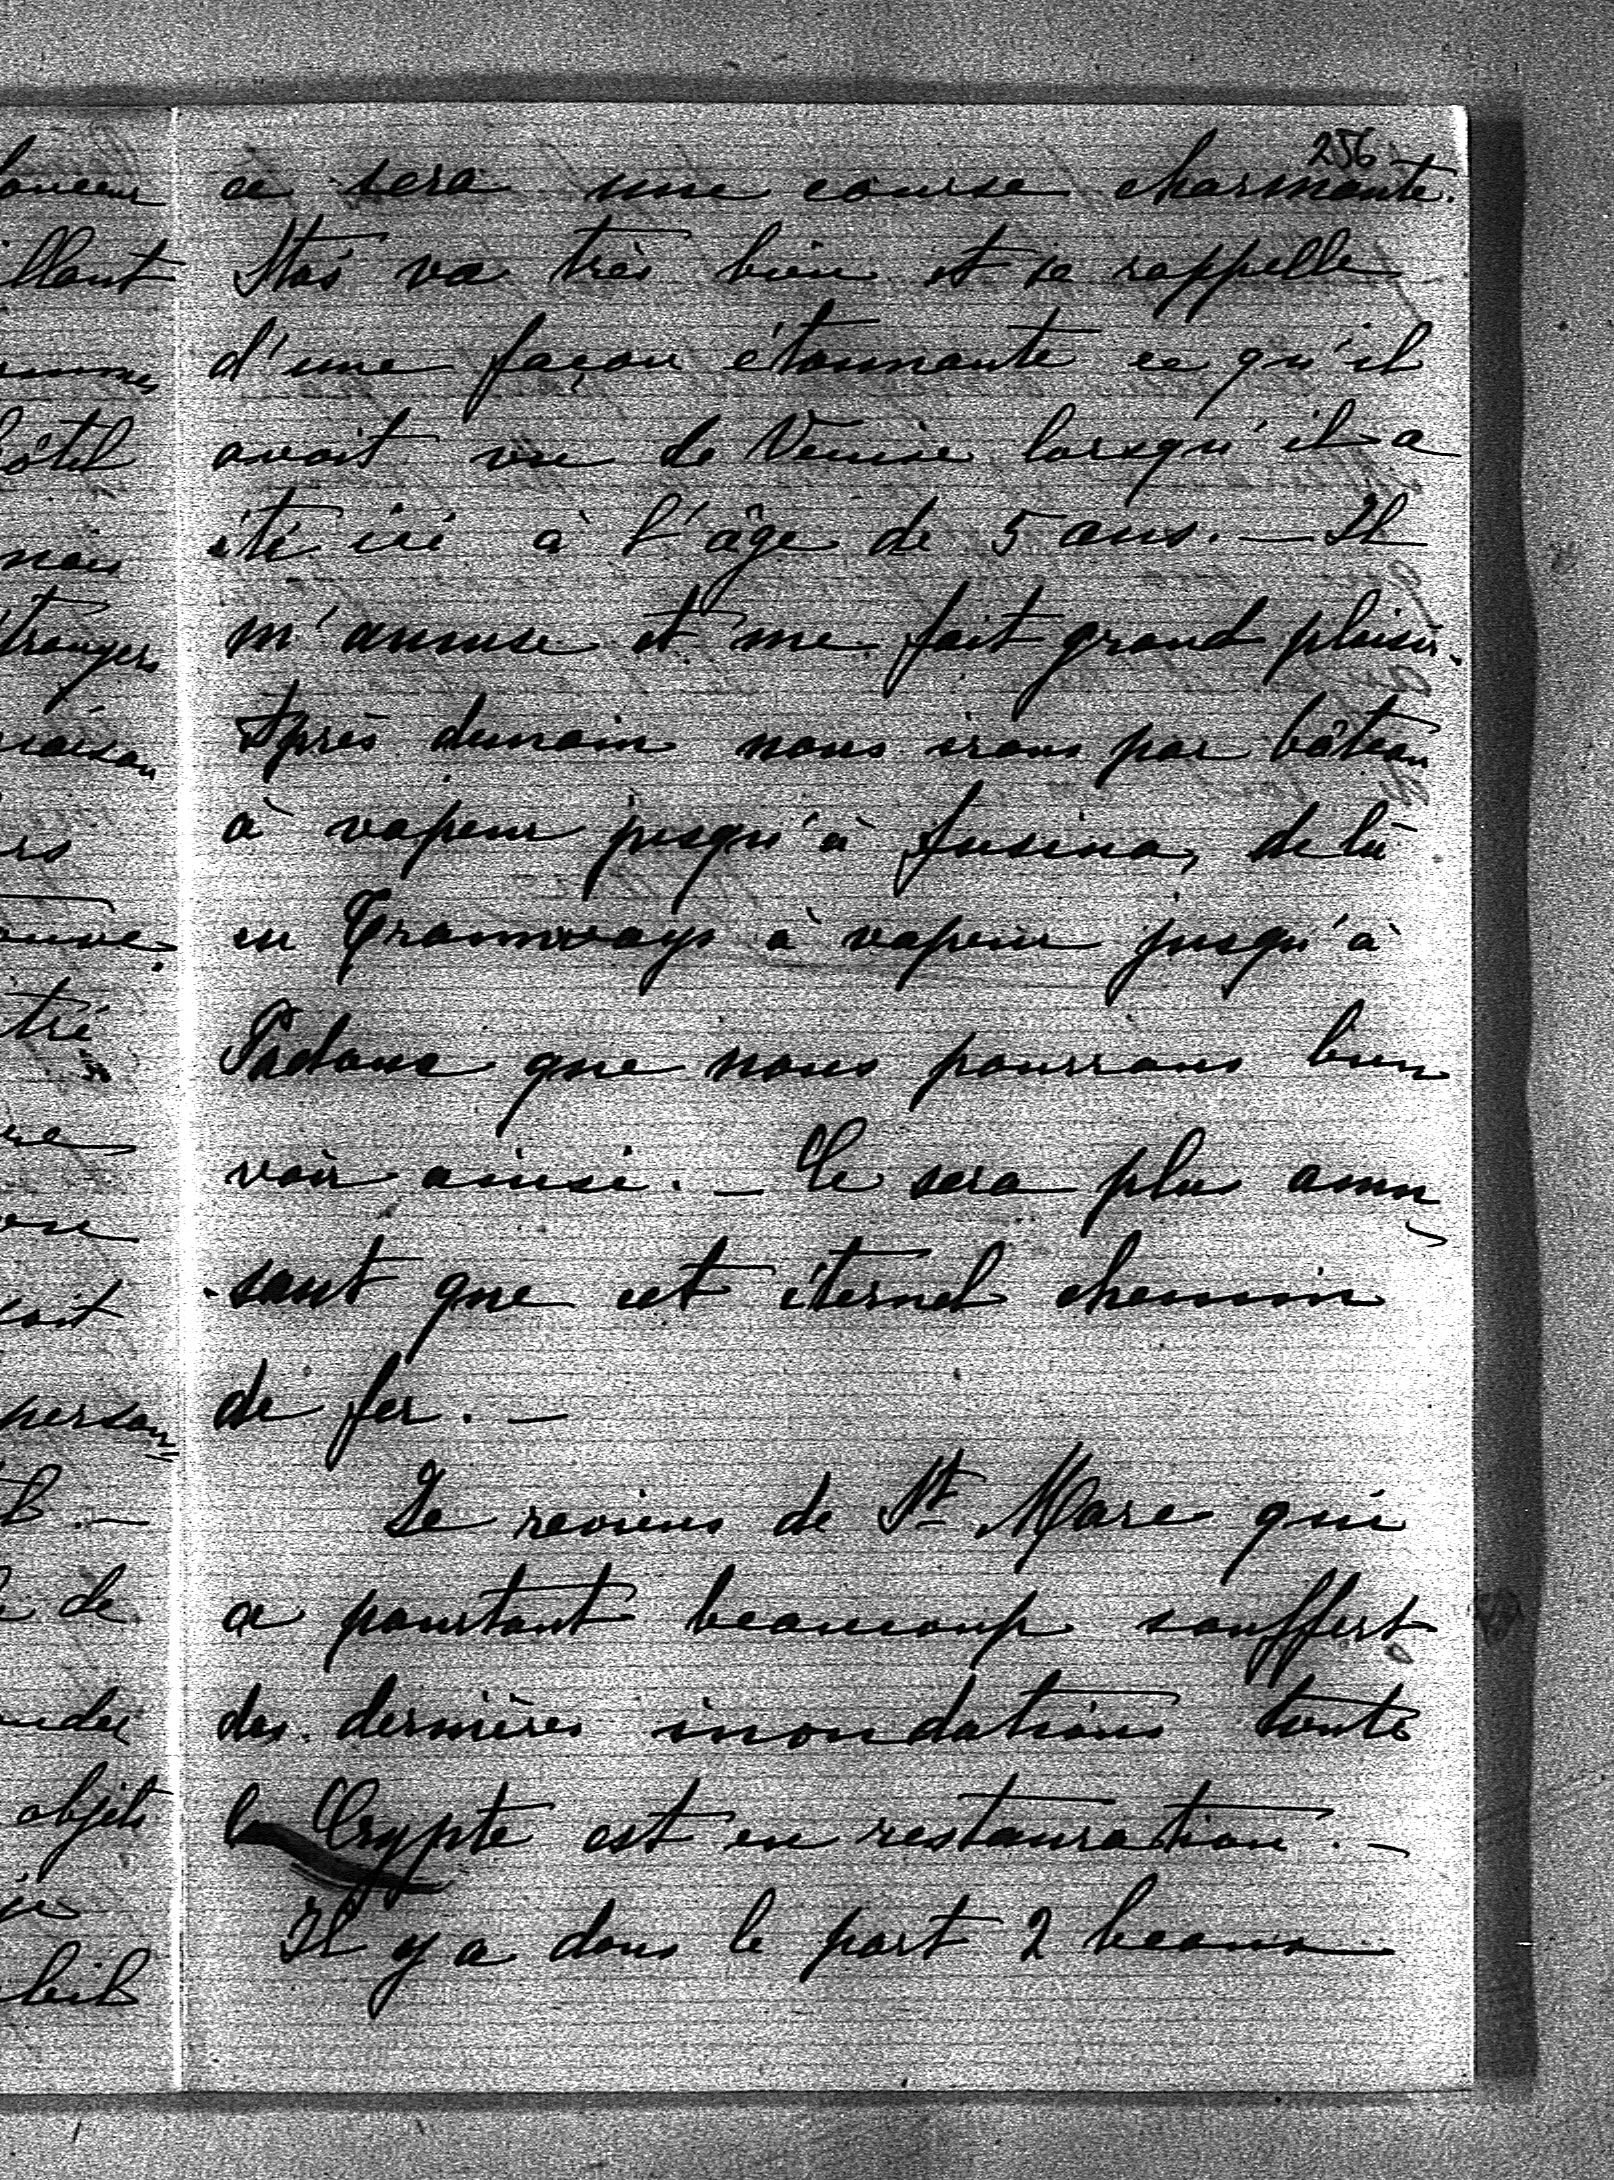 256
ce sera une course charmante.
Stas va très bien et se rappelle
d'une façon étonnante ce qu'il
avait vu de Venise lorsqu'il a
été ici à l'âge de 5 ans. — Il
m'amuse et me fait grand plaisir.
Après demain nous irons par bâteau
à vapeur jusqu'à Fusina, de là
en Tramways à vapeur jusqu'à
Padoue que nous pourrons bien
voir ainsi. — Ce sera plus amu
-sant que cet éternel chemin
de fer. —
Je reviens de St Marc qui
a pourtant beaucoup souffert
des dernières inondations toute
la Crypte est en restauration. —
Il y a dans le port 2 beaux
illant
hôtel
trangers
raison
tré
soit
person=
de
objets